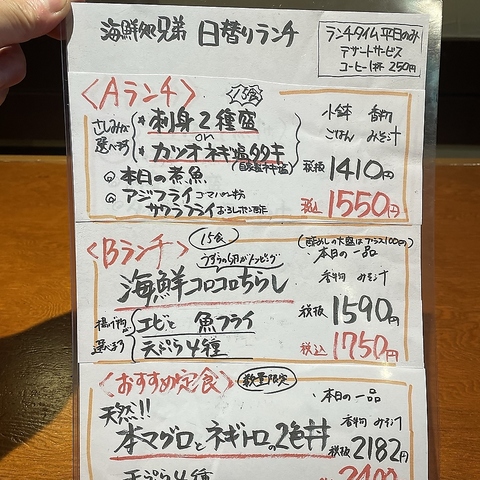 海鮮処 兄弟 日替りランチ
ランチタイム 平日のみ
デザートサービス
コーヒー1杯 250円
<Aランチ>
15食
さしみが
選べます
* 刺身2種盛
or
* カツオネギ塩タタキ
本日の煮魚
アジフライ
サワラフライ おろしポン酢
小鉢 香物
ごはん みそ汁
税抜 1410円
税込 1550円
<Bランチ>
15食
(酢めしの大盛はプラス100円)
海鮮コロコロちらし
本日の一品
香物 みそ汁
揚げ物
選べます
エビと魚フライ
天ぷら4種
税抜 1590円
税込 1750円
<おすすめ定食>
数量限定
天然!!
本マグロとネギトロの2色丼
本日の一品
香物 みそ汁
税抜 2182円
天ぷら4種
2400円